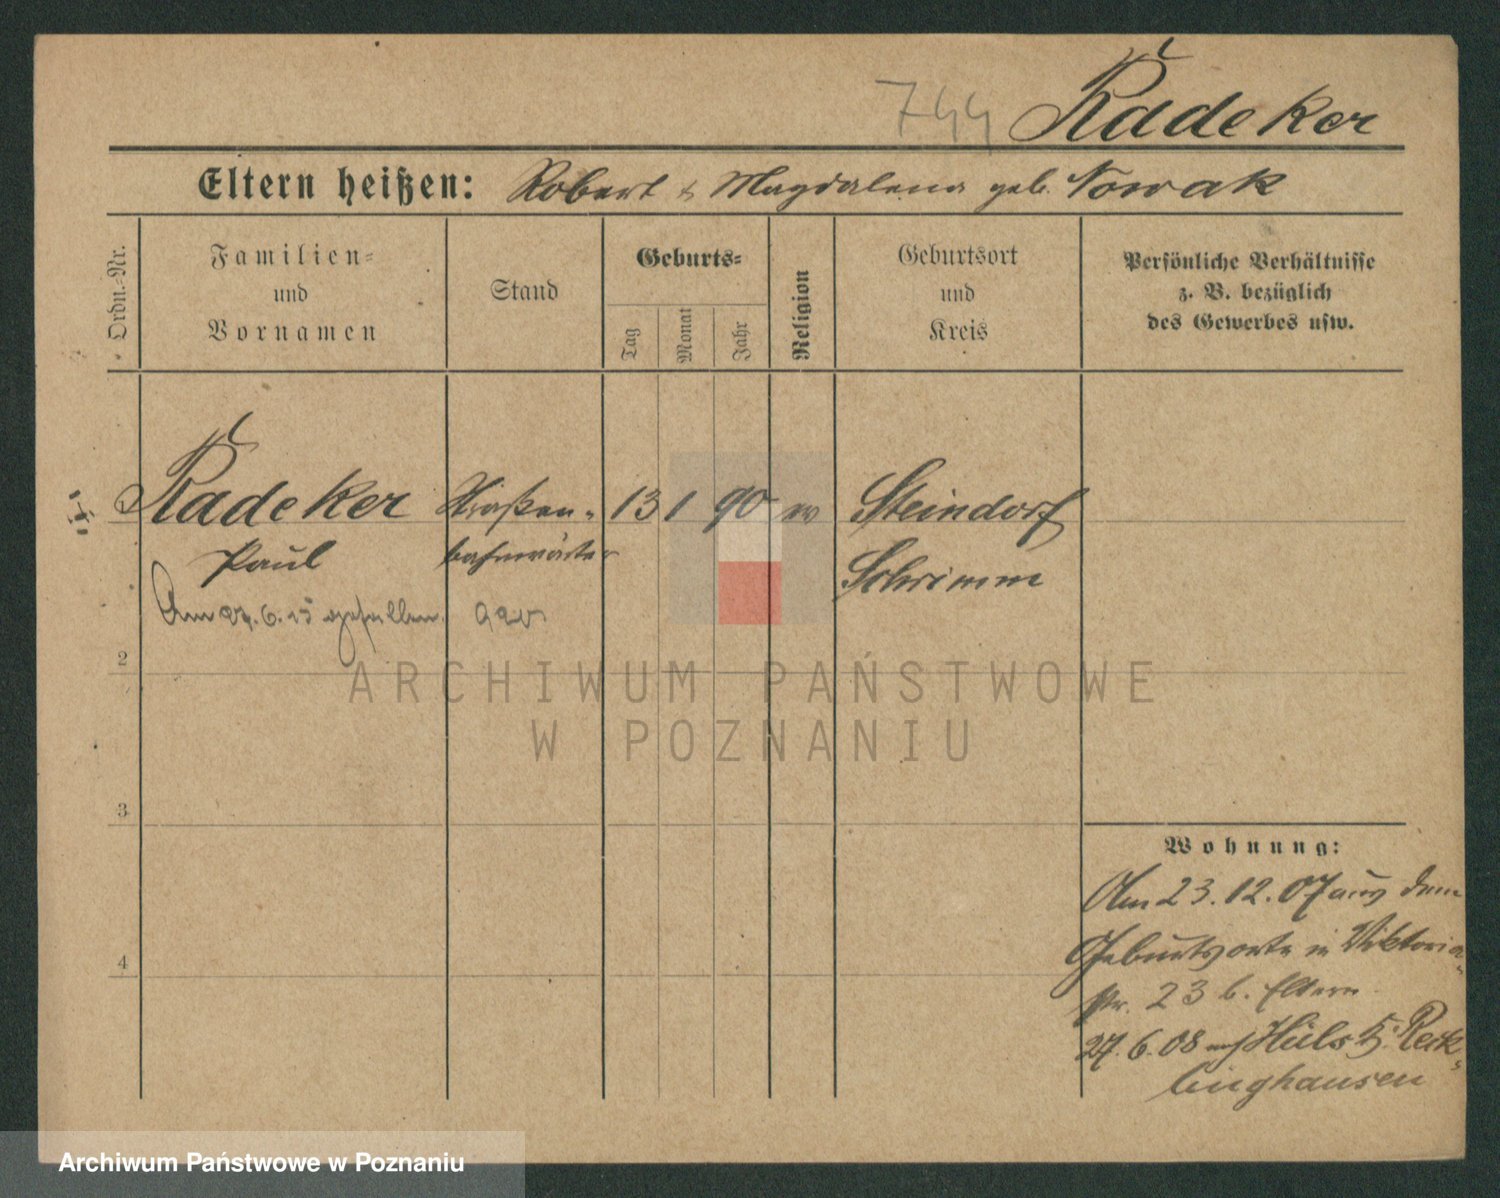 744 Radeker
Eltern heißen: Robert & Magdalena geb. Nowak
Ordn.-Nr.
Familien-
und
Vornamen
Stand
Geburts-
Tag
Monat
Jahr
Religion
Geburtsort
und
Kreis
Persönliche Verhältnisse
z. B. bezüglich
des Gewerbes usw.
Radeker Straßen- 13 1 90 ev Steindorf
Paul bahnwärter Schrimm
Am 27.6.15 gefallen.
2
3
4
Wohnung:
Am 23.12.07 aus dem
Geburtsorte in Viktoria-
str. 23 b. Eltern
27.6.08 nach Hüls K. Reck-
linghausen
ARCHIWUM PAŃSTWOWE
W POZNANIU
Archiwum Państwowe w Poznaniu